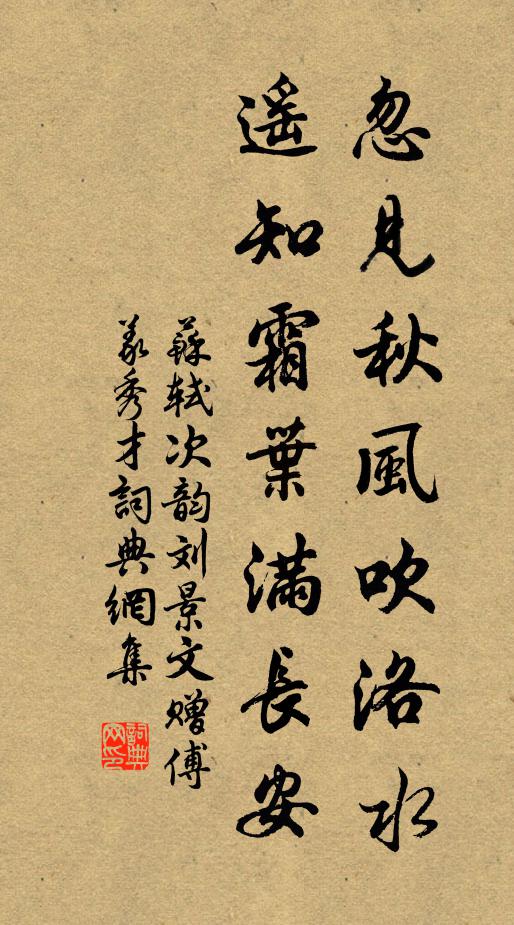 忽見秋風吹洛水
遥知霜葉滿長安
蘇軾次韵刘景文赠傅
羲秀才詞典網集
詞典网印